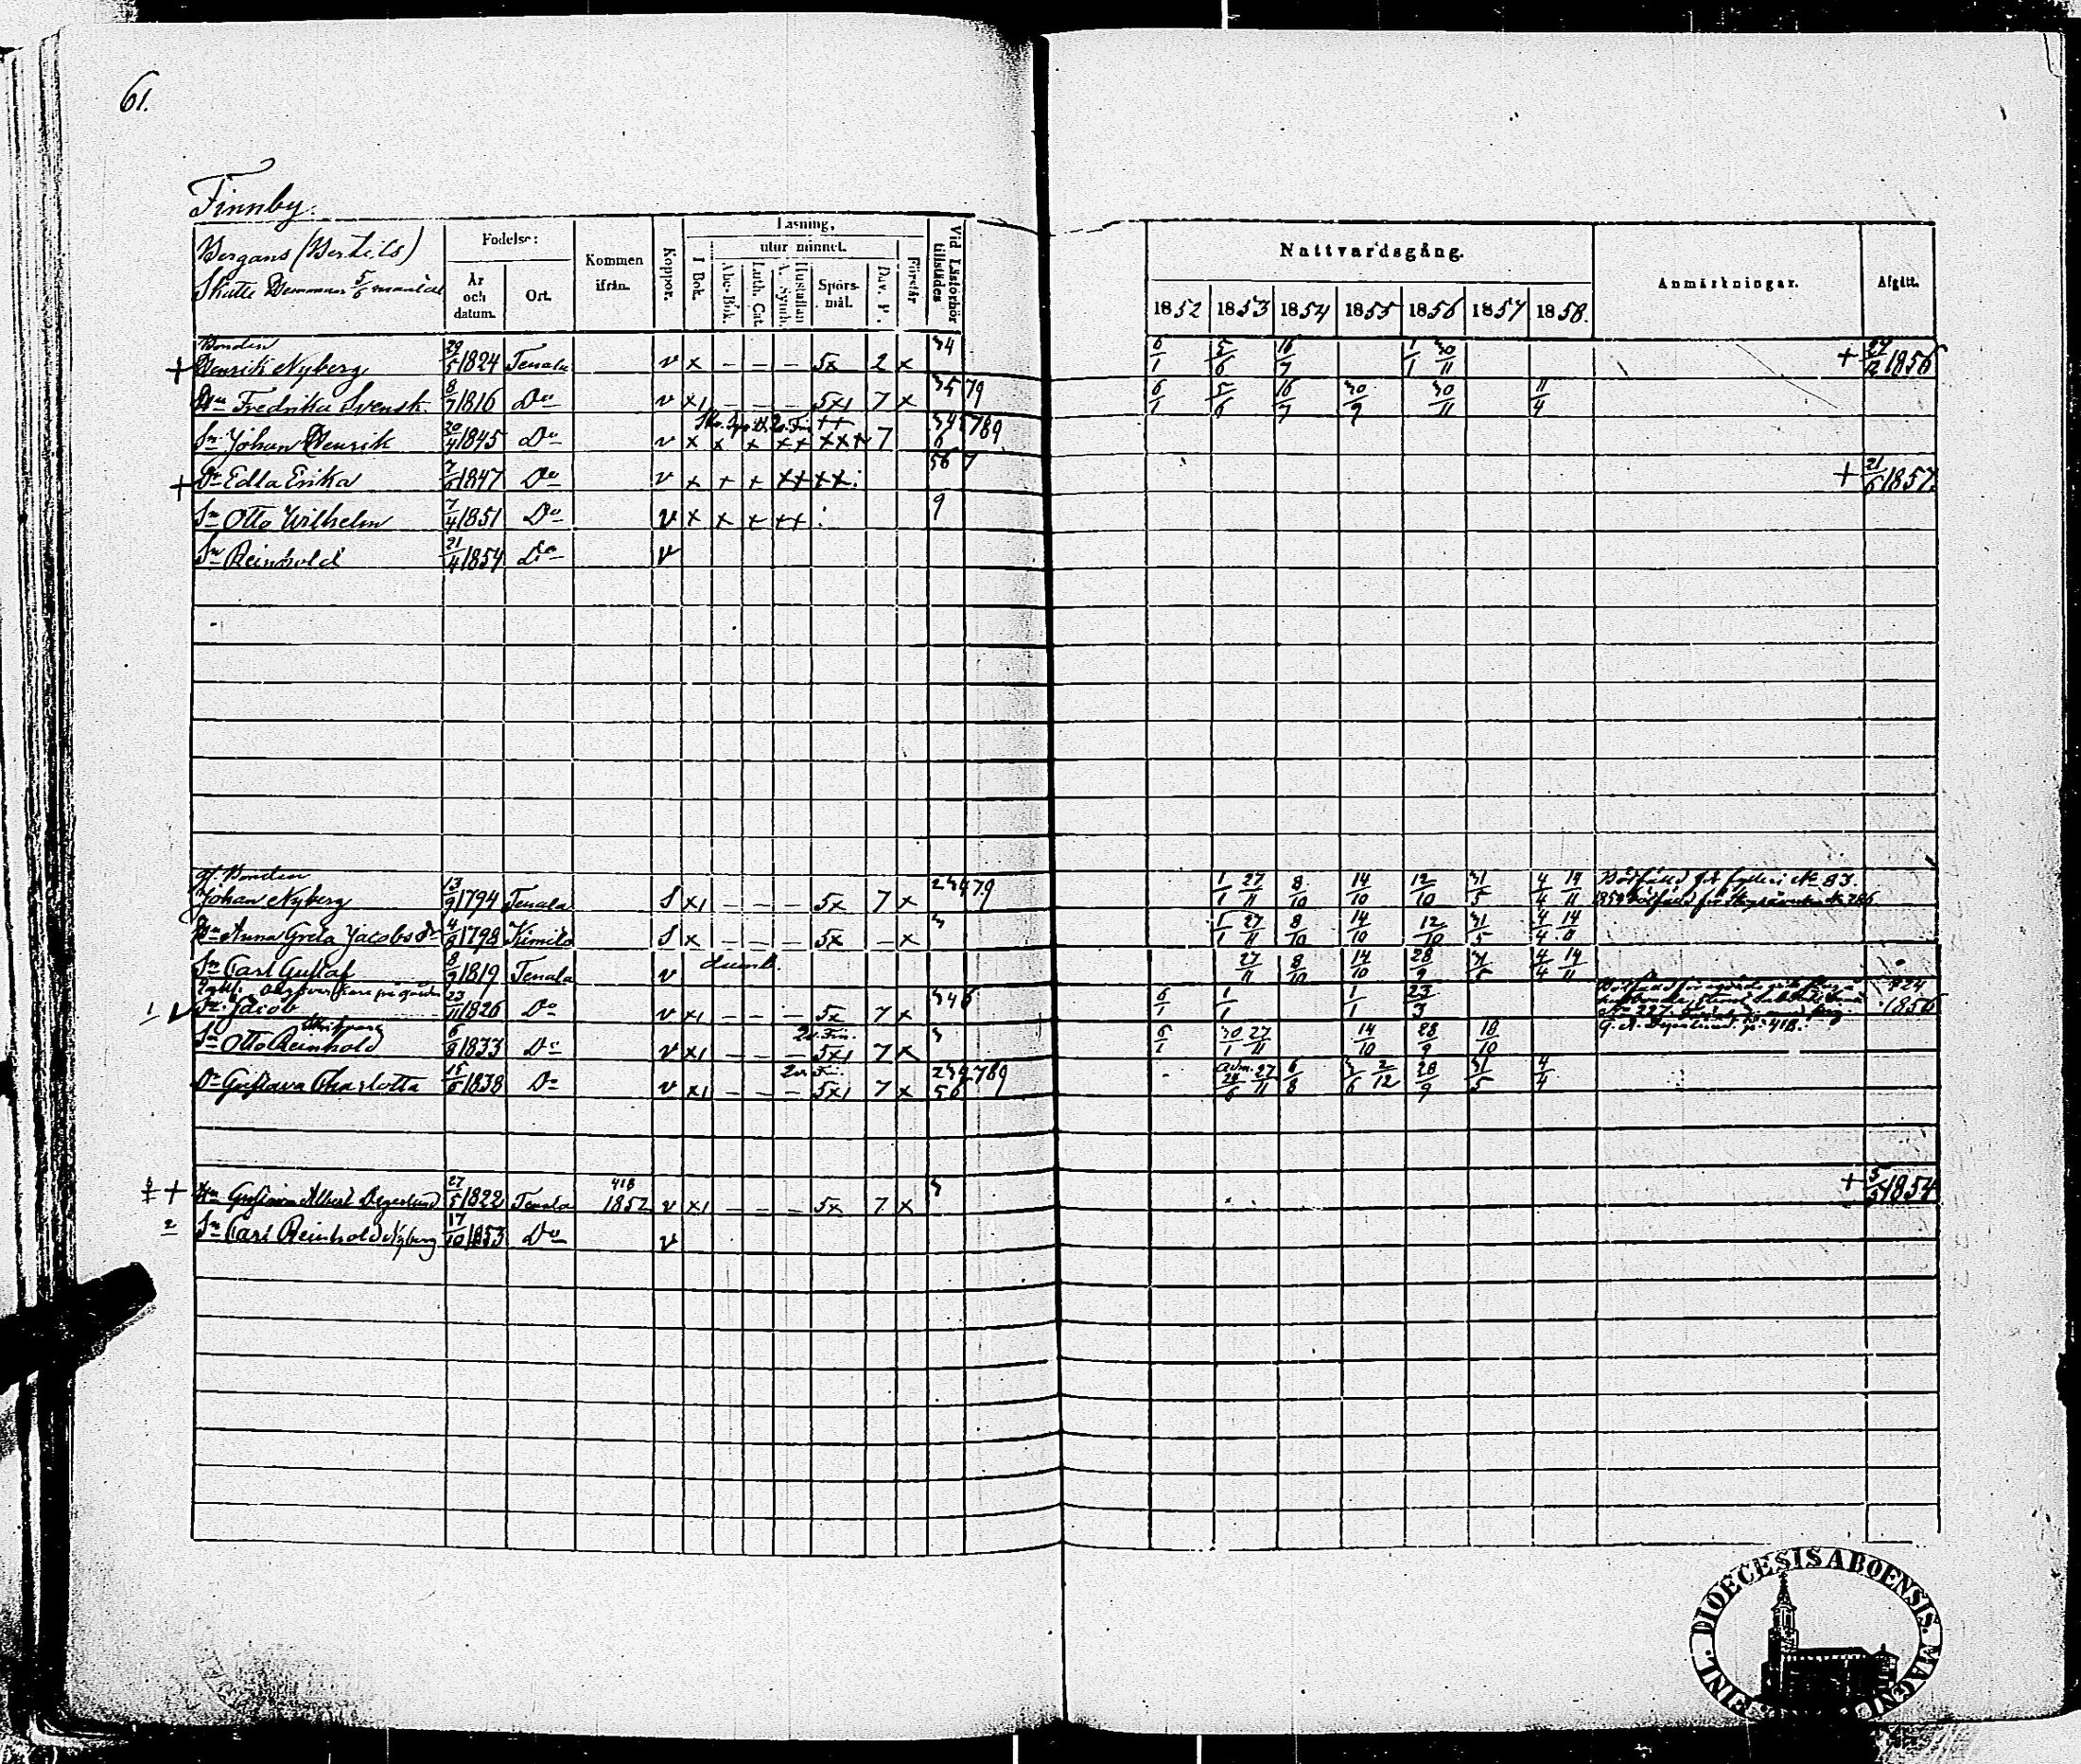 61.
Finnby.
Bergans (Bertils)
Skatte Hemman 5/6 mantal
Födelse:
År och datum.
Ort.
Kommen ifrån.
Koppor.
Läsning,
I Bok.
utur minnet.
Abc-Bok.
Luth. Cat.
A. Symb.
Hustaflan
Spörs-mål.
Dav. P.
Förstår
Vid Läsförhör tillstädes
Nattvardsgång.
1852 1853 1854 1855 1856 1857 1858.
Anmärkningar.
Afgått.
Bonden
+ Henrik Nyberg 29/5 1824 Tenala v x – – – 5x 2 x 34 6/1 5/6 16/7 1/1 30/11 + 27/12 1856
Hu Fredrika Svensk. 8/7 1816 Do v x1 – – – 5x1 7 x 35 79 6/1 5/6 16/7 30/9 30/11 11/4
Sn Johan Henrik 20/4 1845 Do v x x x xx xxx 7 789
+ Dr Edla Erika 7/6 1847 Do v x + + xx xx: 56 7 + 21/6 1857.
Sn Otto Wilhelm 7/4 1851 Do v x x x xx : 9
Sn Reinhold 21/4 1854 Do v
gl. Bonden
Johan Nyberg 13/9 1794 Tenala S x1 – – – 5x 7 x 79 1/1 27/11 8/10 14/10 12/10 31/5 4/4 14/11
Hu Anna Greta Jacobs dr 4/8 1798 Kimito S x – – – 5x – x 3 1/1 27/11 8/10 14/10 12/10 31/5 4/4 14/11
Sn Carl Gustaf 8/9 1819 Tenala v dumb. 27/11 8/10 14/10 28/9 31/5 4/4 14/11
1 v Sn Jacob 23/11 1826 Do v x1 – – – 5x 7 x 346 6/1 1/1 1/1 23/3 824 1856
Sn Otto Reinhold 6/8 1833 Do v x1 – – – 5x1 7 x 3 6/1 30/1 27/11 14/10 28/9 18/10
Dr Gustava Charlotta 15/6 1838 Do v x1 – – – 5x1 7 x 789 56 27/11 6/8 3/6 2/12 28/9 31/5 4/4
+ Hu Gustava Albert. Degerlund 27/5 1822 Tenala 418 1852 v x1 – – – 5x 7 x 3 + 1854
2 Sn Carl Reinhold Nyberg 17/10 1853 Do v
DIOECESIS ABOENSIS. MAGNI FINL.